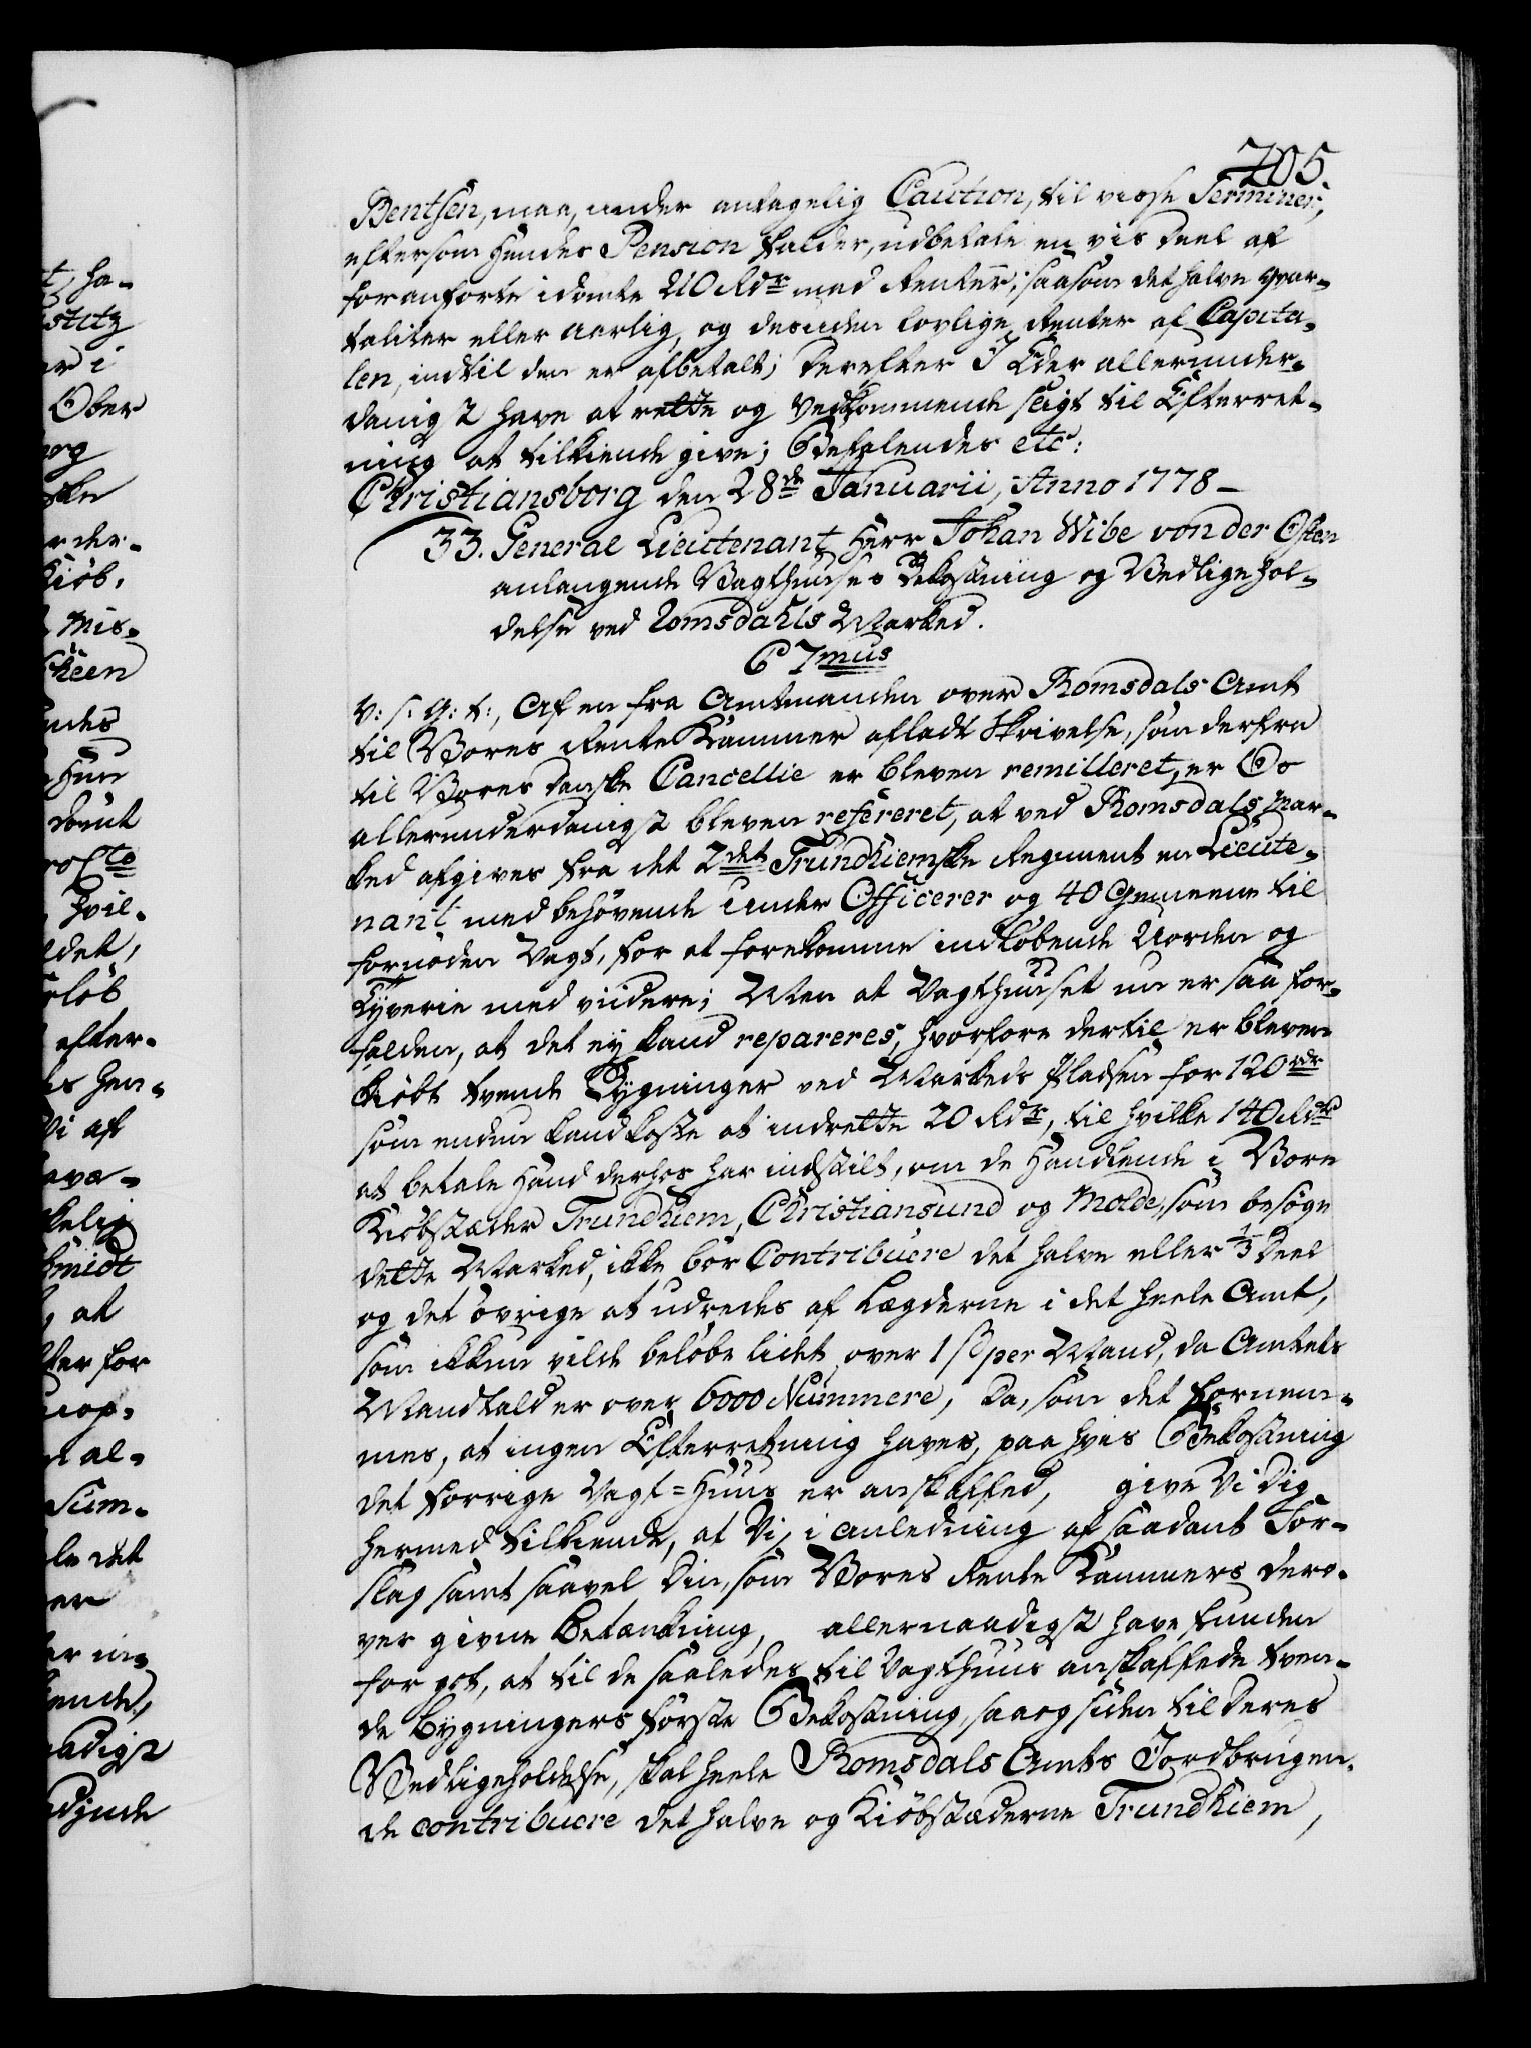 205.
Bentsen, maa, under antagelig Caution, til visse Terminer,
eftersom Hendes Pension falder, udbetale en vis Deel af
foranførte idømte 210 Rdr med Renter; saasom det halve qvar-
taliter eller aarlig, og desuden lovlige Renter af Capita-
len, indtil den er afbetalt; Derefter I Eder allerunder-
danigst have at rette og Vedkommende sligt til Efterret-
ning at tilkiende give; Befalendes etc:
Christiansborg den 28de Januarii, Anno 1778-
33. General Lieutenant Herr Johan Wibe von der Osten
anlangende Vagthuuses Bekostning og Vedligehol-
delse ved Romsdahls Marked.
C 7mus
V: s: G: t:, Af en fra Amtmanden over Romsdals Amt
til Vores Rente Kammer afladt Skrivelse, som derfra
til Vores danske Cancellie er bleven remitteret, er Os
allerunderdanigst bleven refereret, at ved Romsdals Mar-
ked afgives fra det 2det Trundhiemske Regiment en Lieute-
nant med behøvende Under Officerer og 40 Gemeene til
fornøden Vagt, for at forekomme indløbende Uorden og
Tyverie med viidere; Men at Vagthuuset nu er saa for-
falden, at det ey kand repareres, hvorfore dertil er bleven
kiøbt tvende Bygninger ved Markeds Pladsen for 120 rdr
som endnu kand koste at indrette 20 Rdr, til hvilke 140 Rdr
at betale Hand derhos har indstilt, om de Handlende i Vore
Kiøbstæder Trundhiem, Christiansund og Molde, som besøge
dette Marked, ikke bør Contribuere det halve eller 1/3 Deel
og det øvrige at udredes af Lægderne i det heele Amt,
som ikkun vilde beløbe lidet over 1 ß per Mand, da Amtets
Mandtald er over 6000 Nummere, Da, som det fornem-
mes, at ingen Efterretning haves, paa hvis Bekostning
det forrige Vagt=Huus er anskaffed, give Vi Dig
hermed tilkiende, at Vi, i anledning af saadant For-
slag samt saavel Din, som Vores Rente Kammers dero-
ver givne Betænkning, allernaadigst have funden
for got, at til de saaledes til Vagthuus anskaffede tven-
de Bygningers første Bekostning, saa og siden til Deres
Vedligeholdelse, skal heele Romsdals Amts Jordbrugen-
de contribuere det halve og Kiöbstæderne Trundhiem,